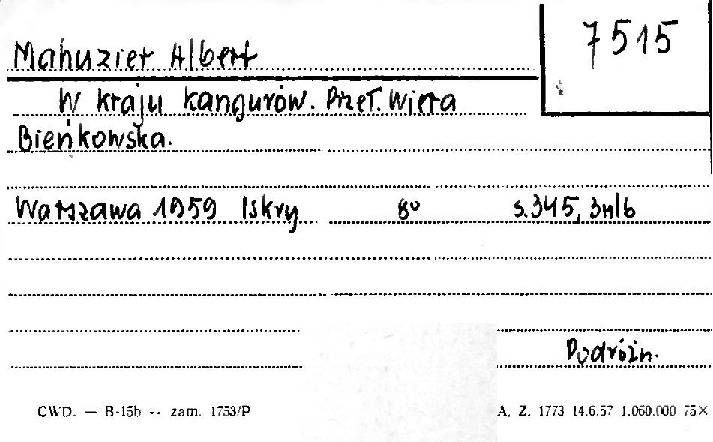 7515
Mahuzier Albert
W kraju kangurów. Przeł. Wiera
Bieńkowska.
Warszawa 1959 Iskry 8° s. 345, 3nlb
Podróżn.
CWD. — B-15b -- zam. 1753/P A. Z. 1773 14.6.57 1.060.000 75×